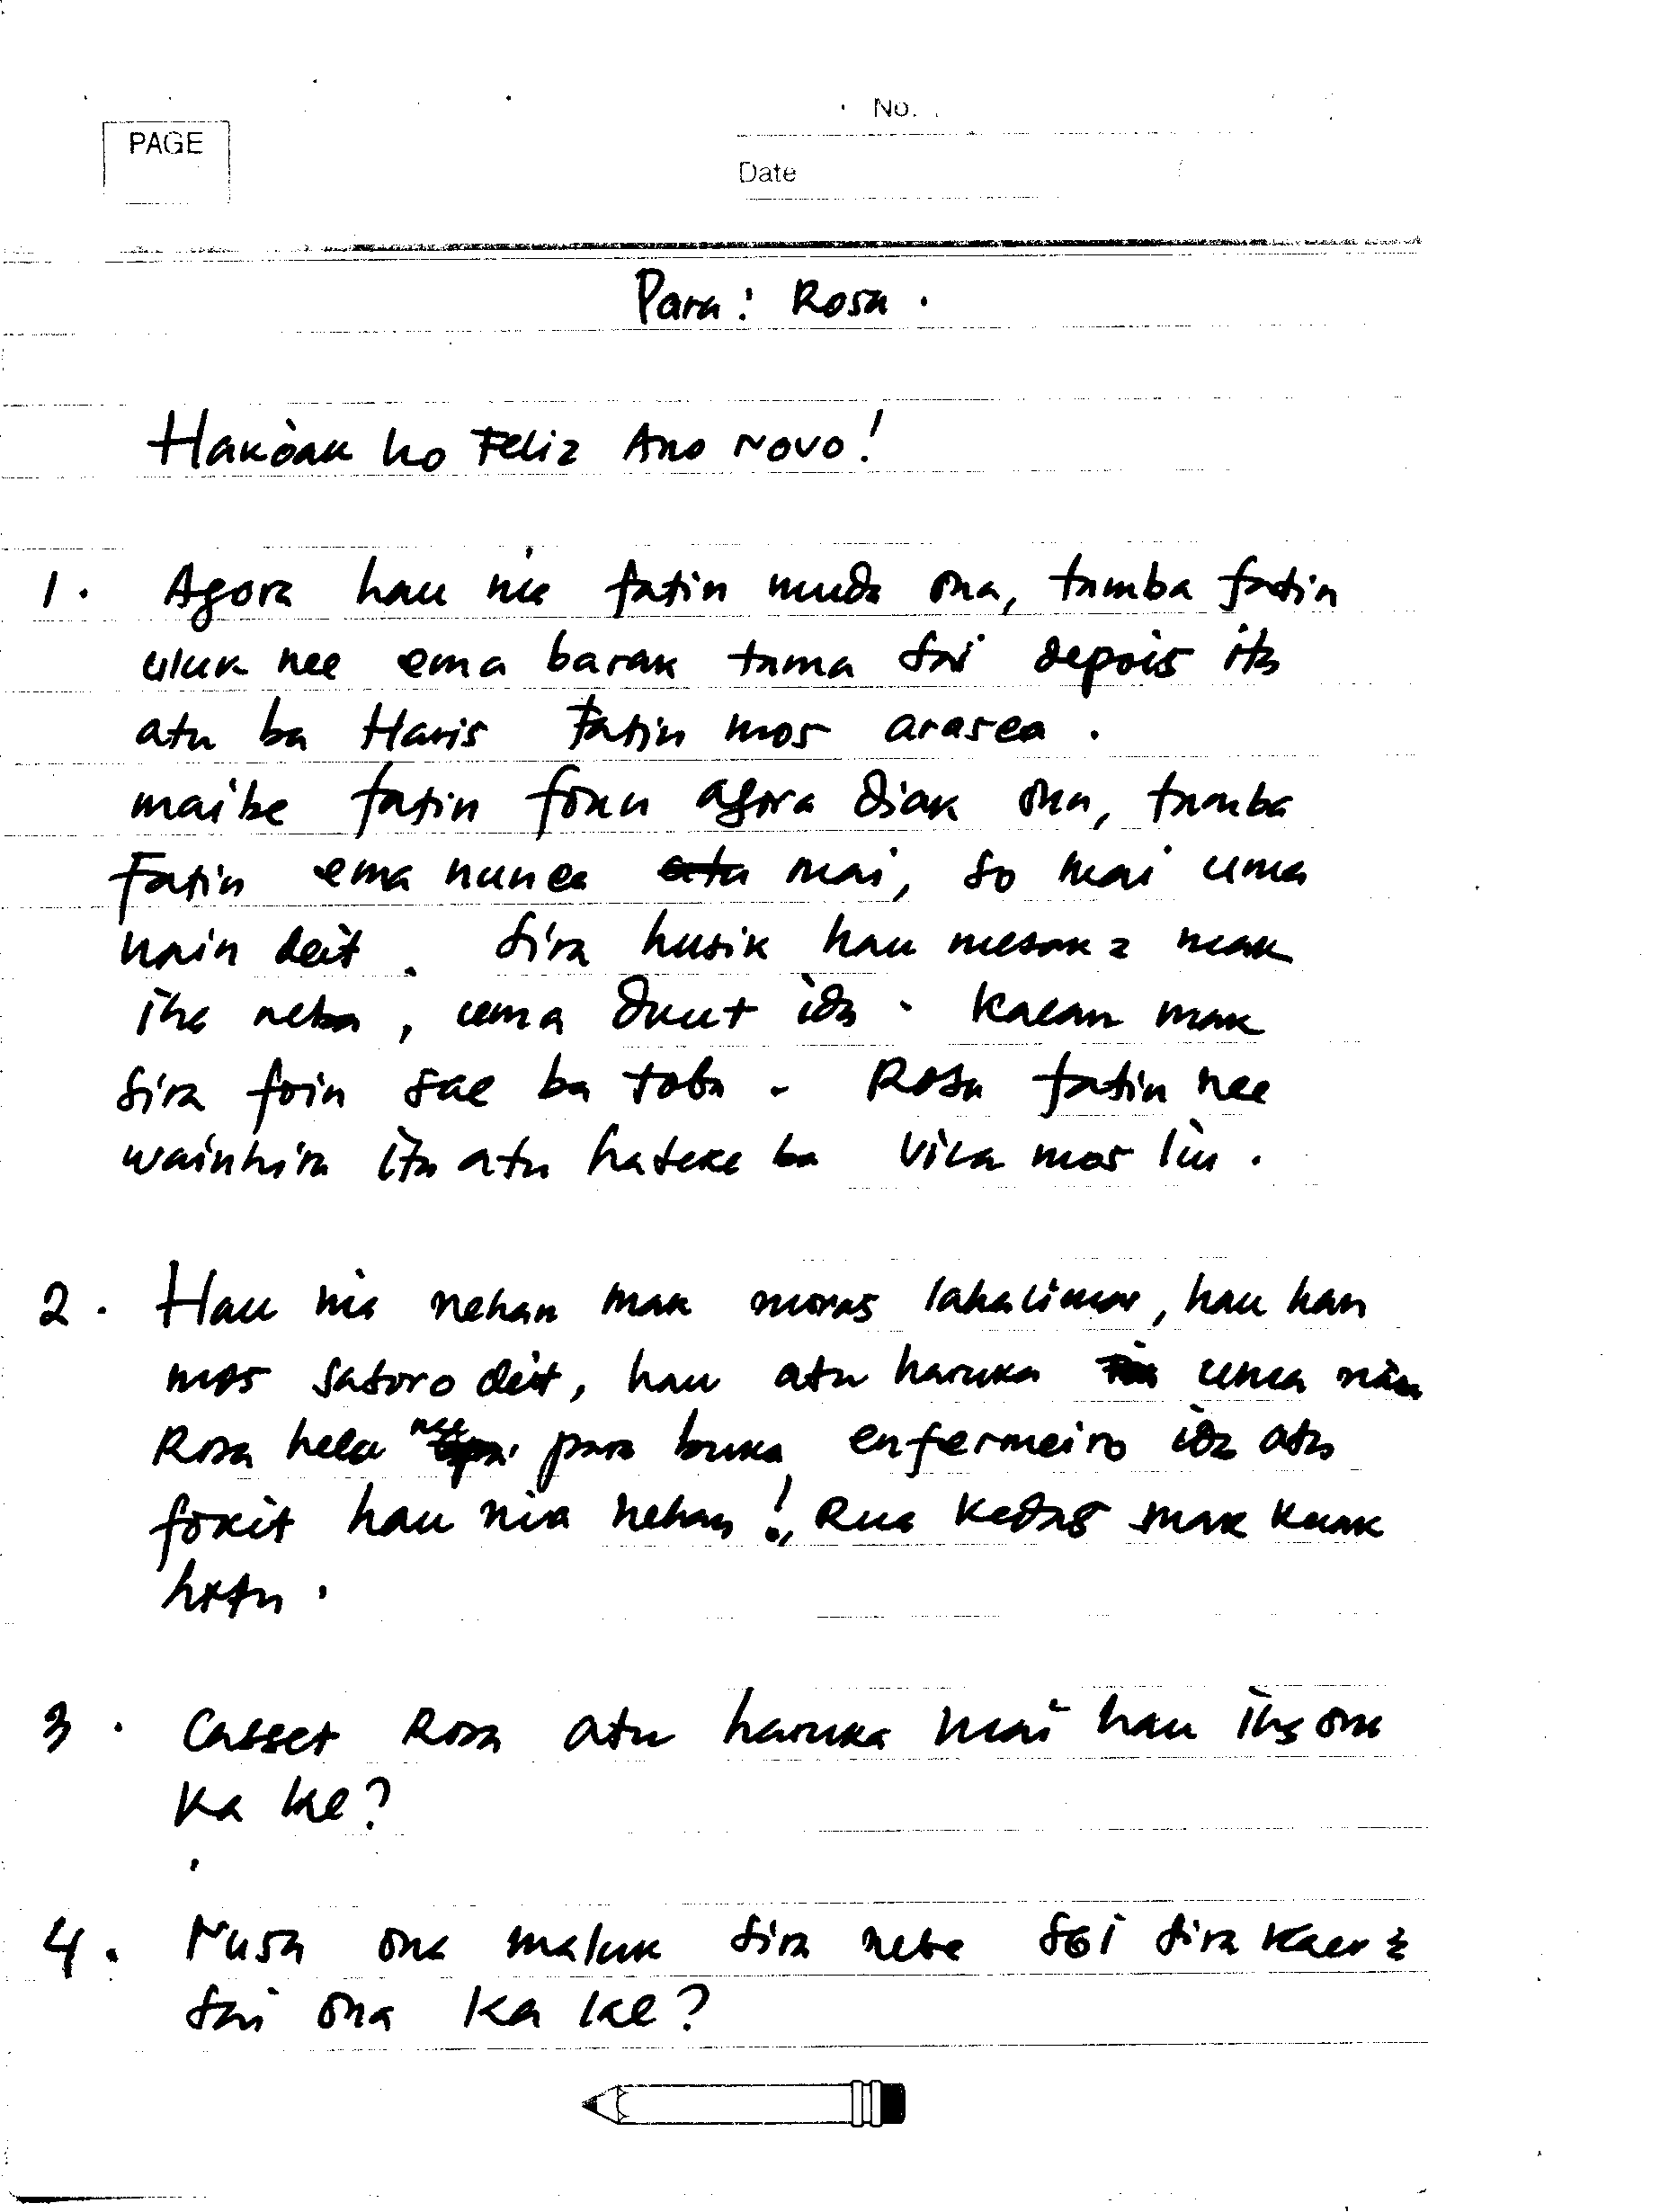 No.
PAGE
Date
Para: Rosa.
Hakòak ho Feliz Ano Novo!
1. Agora hau nia fatin muda ona, tamba fatin
uluk nee ema barak tama sai depois ita
atu ba Haris Fatin mos arasea.
maibe fatin foun agora diak ona, tamba
Fatin ema nunca mai, so mai uma
nain deit. Sira husik hau mesak 2 mak
iha neba, uma duut ida. Kalan mak
sira foin sae ba toba. Rosa fatin nee
wainhira ita atu hateke ba Vila mos liu.
2. Hau nia nehan mak moras lahalimar, hau han
mos satoro deit, hau atu haruka uma nain
Rosa hela nee para buka enfermeiro ida atu
fokit hau nia nehan! Rua kedas mak kuak
hotu.
3. Casset Rosa atu haruka mai hau iha ona
ka lae?
4. Nusa ona maluk sira nebe foi sira kaer 2
sai ona ka lae?